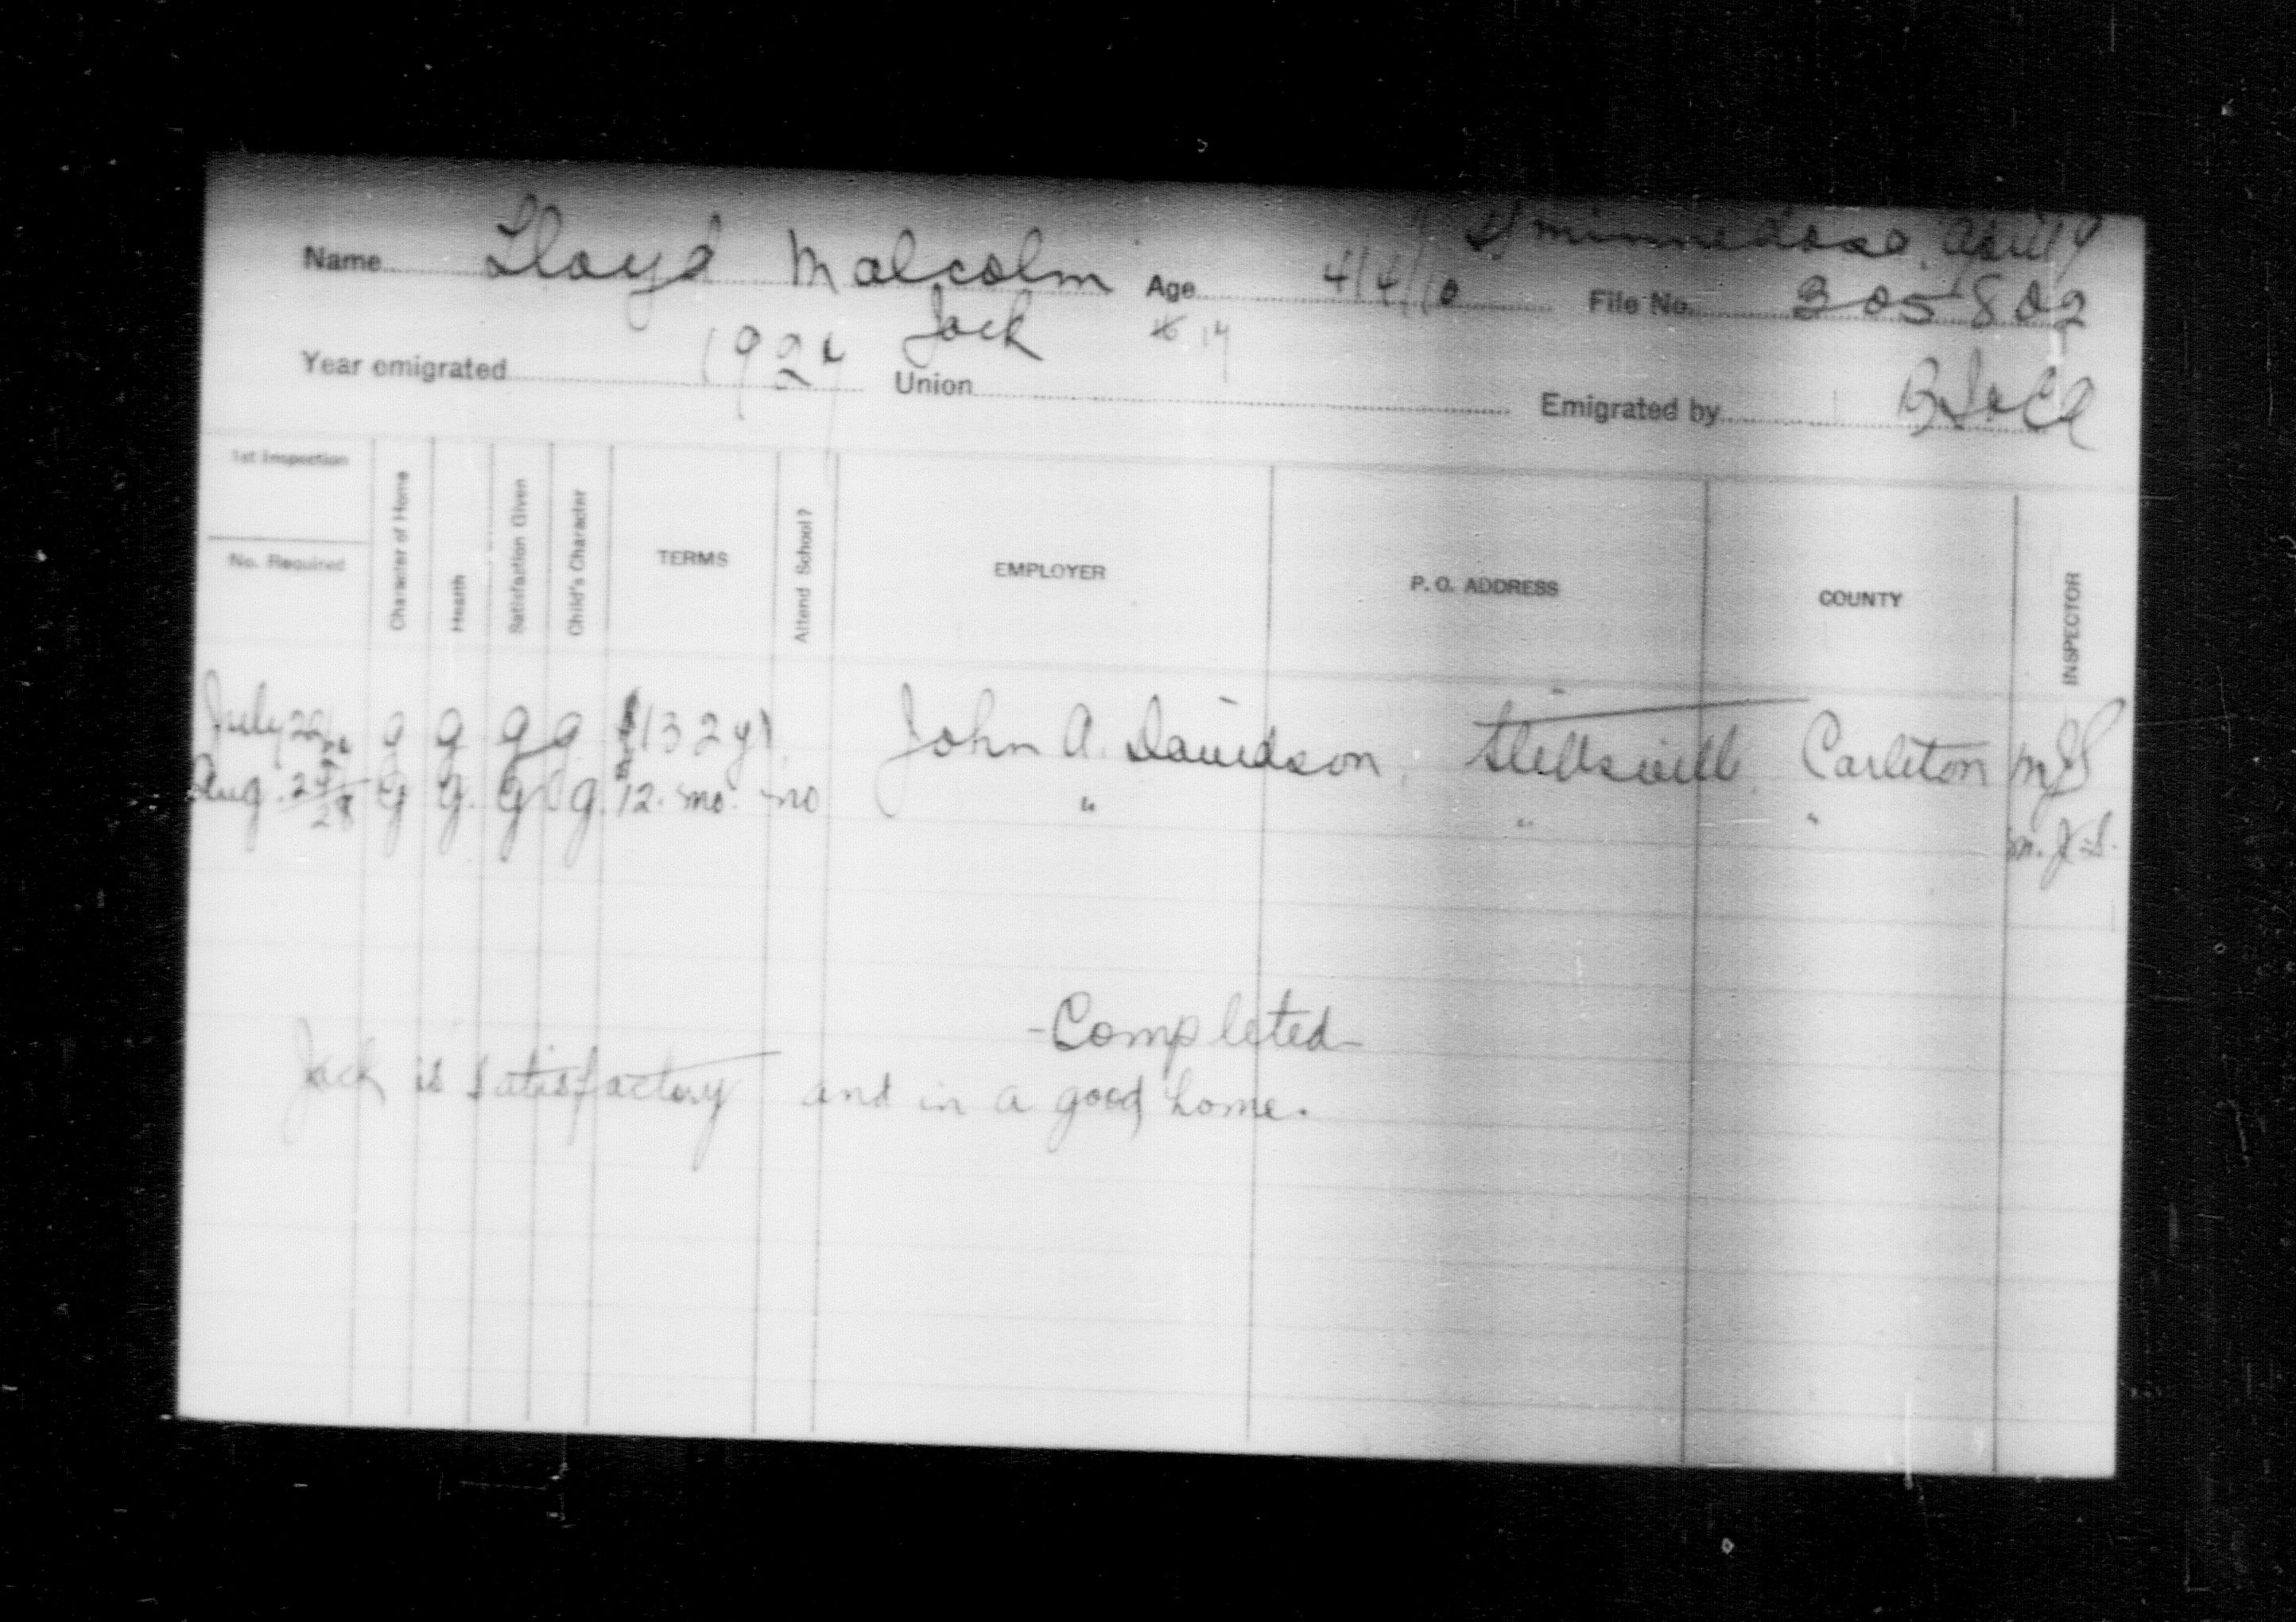 Minnedosa, April 19
Name Lloyd Malcolm Age 4/4/10 File No. 305802
Jack 16 14
Year emigrated 1924 Union Emigrated by
1st Inspection
No. Required
Character of Home
Health
Satisfaction Given
Child's Character
TERMS
Attend School?
EMPLOYER
P. O. ADDRESS
COUNTY
INSPECTOR
July 22 g g g g John A. Davidson, Stittsville Carleton MJS
Aug. 24/28 g g. g g. 12. mo. no " " " m.J.S.
-Completed-
Jack is satisfactory and in a good home.